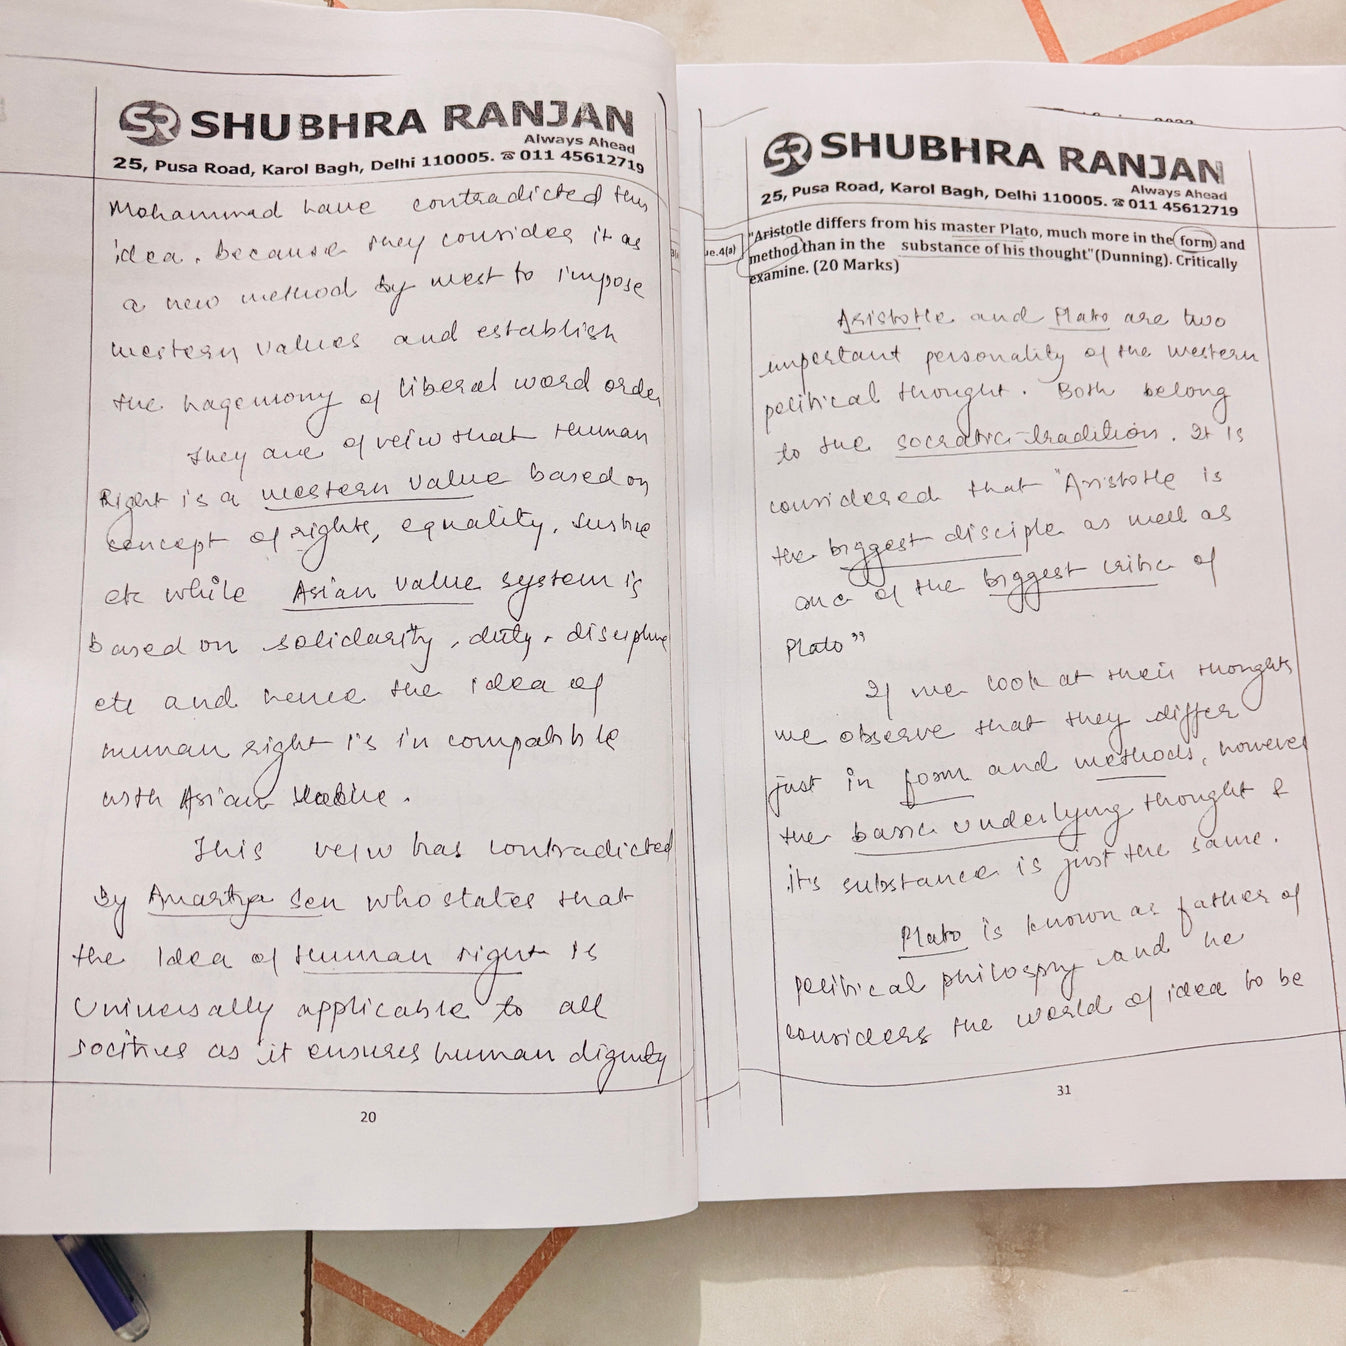 SHUBHRA RANJAN
Always Ahead
25, Pusa Road, Karol Bagh, Delhi 110005. ☎ 011 45612719
Mohammad have contradicted this
idea. because they consider it as
a new method by west to impose
western values and establish
the hagemony of liberal word order
They are of veiw that Human
Right is a western value based on
concept of rights, equality, Justice
etc while Asian value system is
based on solidarity, duty, discipline
etc and hence the idea of
human right is in compatible
with Asian Value.
This veiw has contradicted
by Amartya Sen who states that
the Idea of Human right is
Universally applicable to all
socities as it ensures human dignity
20
SHUBHRA RANJAN
Always Ahead
25, Pusa Road, Karol Bagh, Delhi 110005. ☎ 011 45612719
ue.4(a)
"Aristotle differs from his master Plato, much more in the form and
method than in the substance of his thought"(Dunning). Critically
examine. (20 Marks)
Aristotle and Plato are two
important personality of the western
political thought. Both belong
to the socratic-tradition. It is
considered that "Aristotle is
the biggest disciple as well as
one of the biggest critic of
Plato"
If we look at their thoughts
we observe that they differ
just in form and methods, however
the basic underlying thought &
its substance is just the same.
Plato is known as father of
political philospry and he
considers the world of idea to be
31